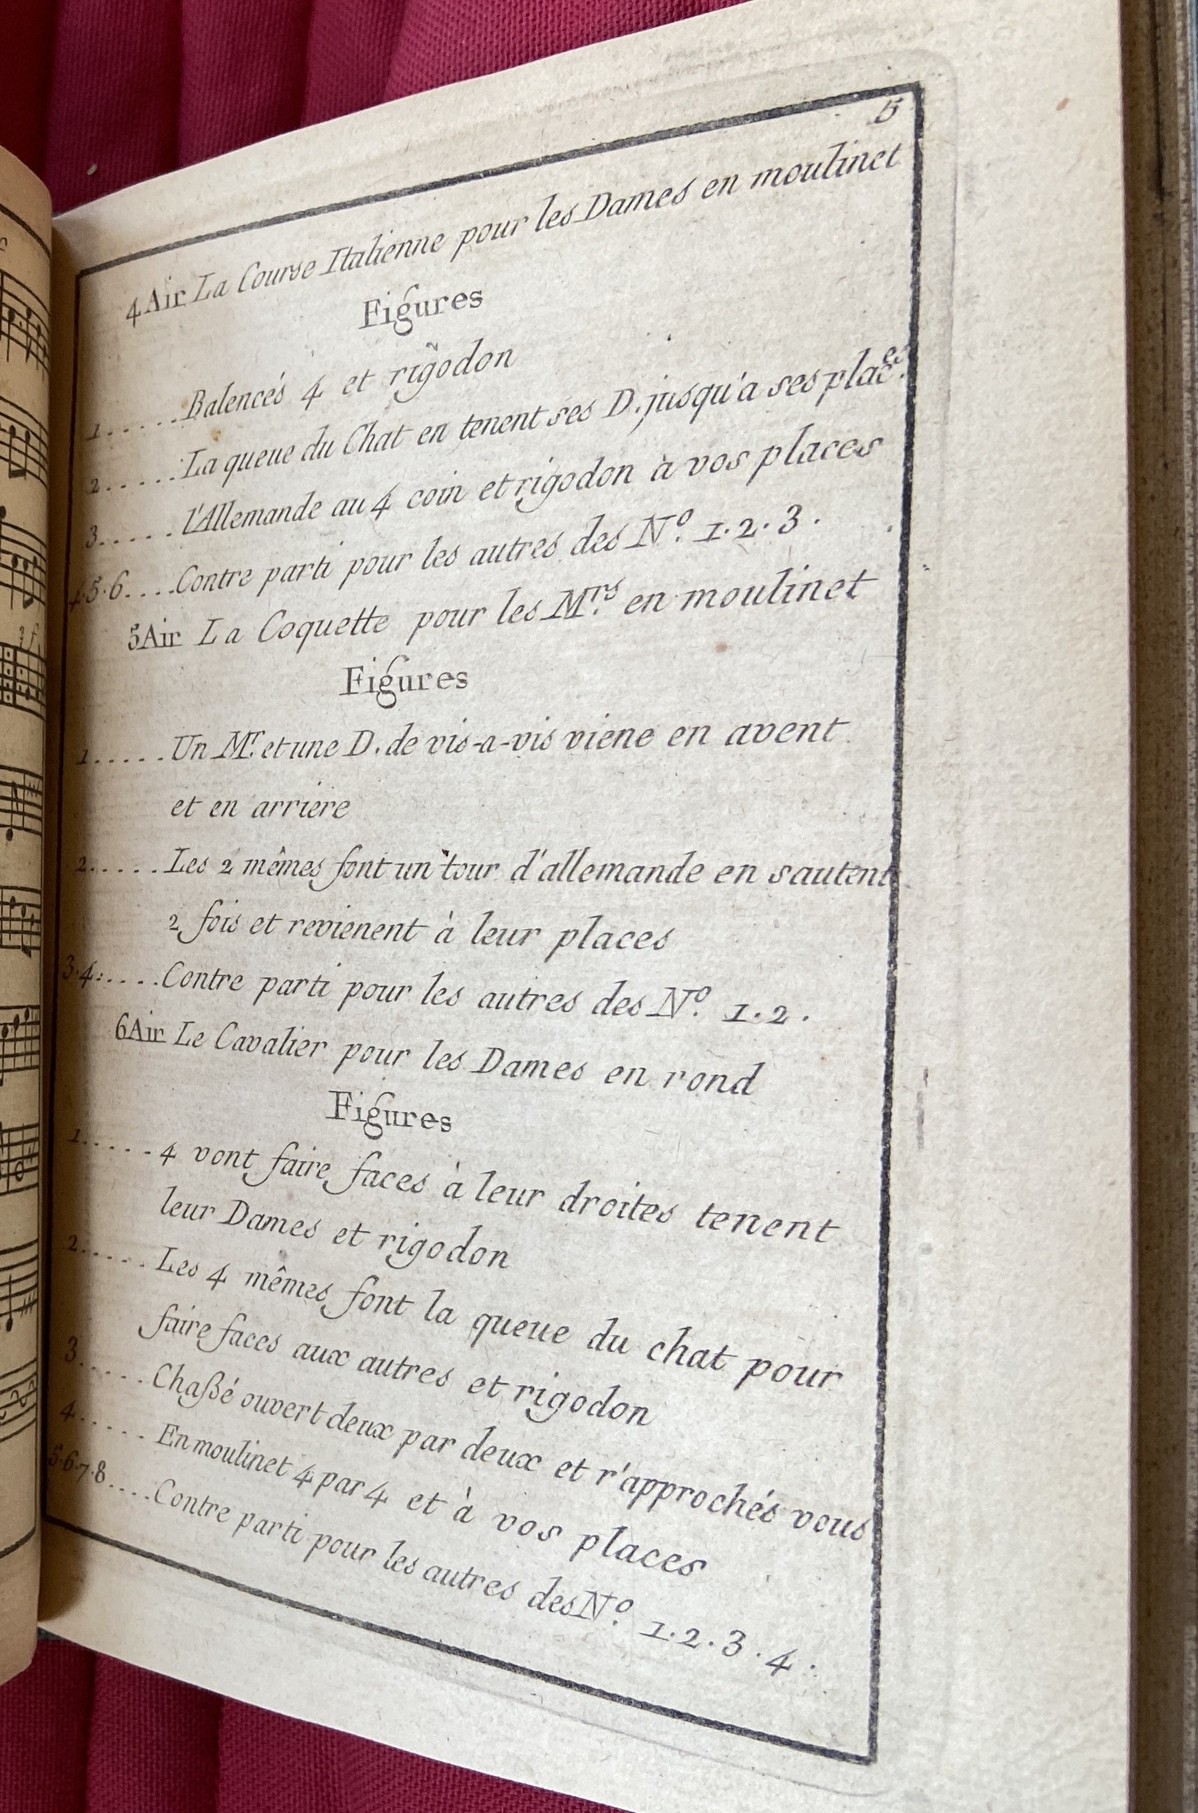 5
4 Air La Course Italienne pour les Dames en moulinet
Figures
1......Balencés 4 et rigodon
2......La queue du Chat en tenent ses D. jusqu'a ses places.
3......l'Allemande au 4 coin et rigodon à vos places
4.5.6....Contre parti pour les autres des No. 1.2.3.
5 Air La Coquette pour les Mrs. en moulinet
Figures
1.....Un Mr. et une D. de vis-a-vis viene en avent
et en arriere
2.....Les 2 mêmes font un tour d'allemande en sautent
2 fois et revienent à leur places
3.4:....Contre parti pour les autres des No. 1.2.
6 Air Le Cavalier pour les Dames en rond
Figures
1.....4 vont faire faces à leur droites tenent
leur Dames et rigodon
2.....Les 4 mêmes font la queue du chat pour
faire faces aux autres et rigodon
3.....Chaßé ouvert deux par deux et r'approchés vous
4.....En moulinet 4 par 4 et à vos places
5.6.7.8....Contre parti pour les autres des No. 1.2.3.4.